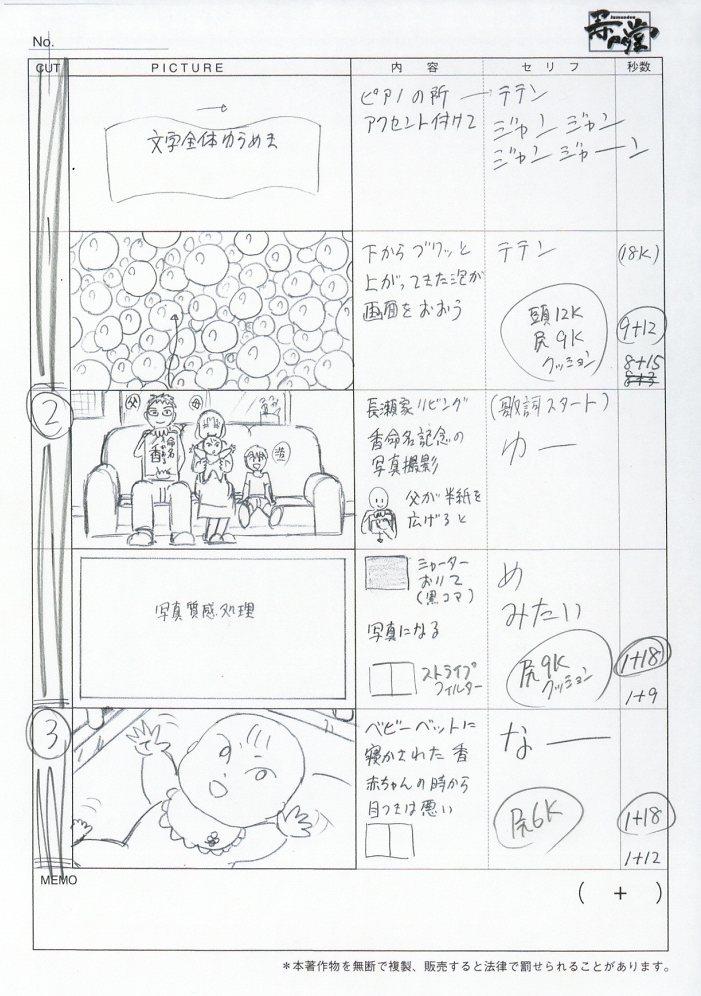 Jumondou
No.
CUT
PICTURE
内容
セリフ
秒数
文字全体ゆらめき
ピアノの所
アクセント付けて
テテン
ジャン ジャン
ジャン ジャーン
下からブワッと
上がってきた泡が
画面をおおう
テテン
頭12K
尻9K
クッション
(18K)
9+12
8+15
②
父
母
命名
香
長瀬家リビング
香命名記念の
写真撮影
父が半紙を
広げると
(歌詞スタート)
ゆー
写真質感処理
シャーター
おりて
(黒コマ)
写真になる
ストライプ
フィルター
め
みたい
尻9K
クッション
1+18
1+9
③
ベビーベットに
寝かされた香
赤ちゃんの時から
目つきは悪い
なー
尻6K
1+18
1+12
MEMO
( + )
*本著作物を無断で複製、販売すると法律で罰せられることがあります。